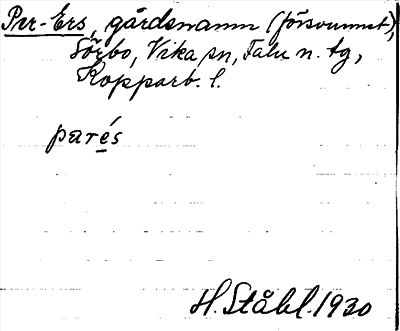 Per-Ers, gårdsnamn (försvunnet),
Sörbo, Vika sn, Falu n. tg,
Kopparb. l.
parés
H. Ståhl. 1930